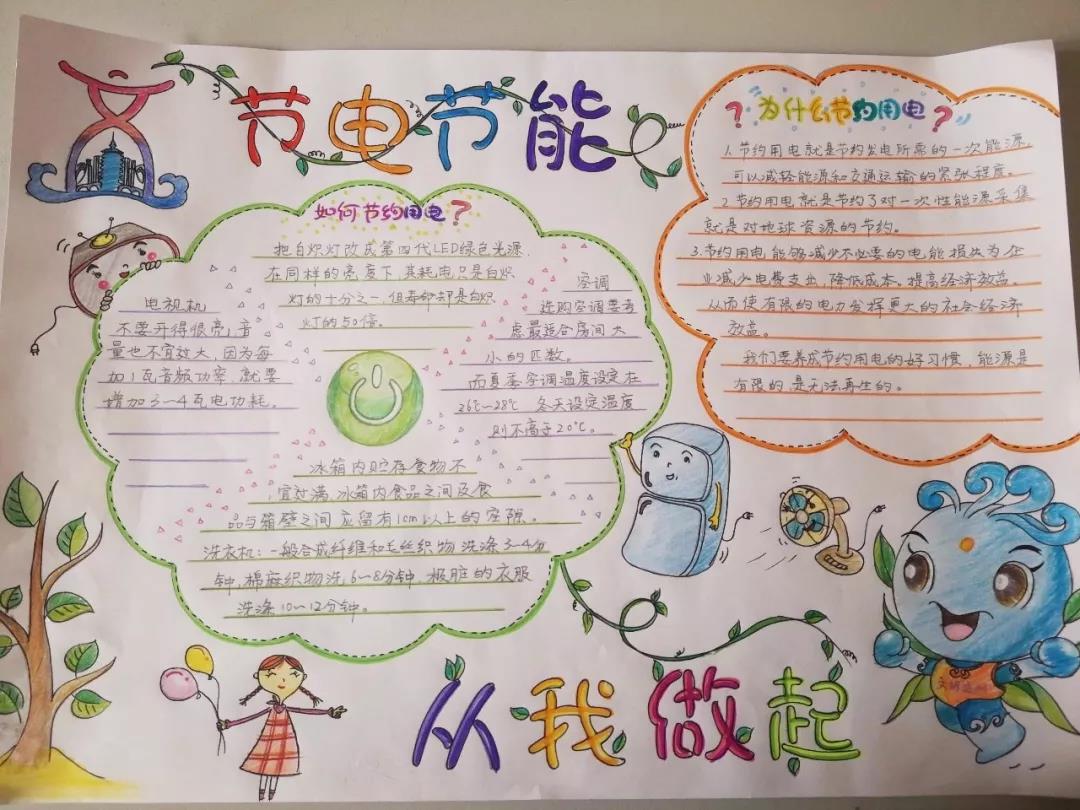 节电节能
如何节约用电?
把白炽灯改成第四代LED绿色光源.
在同样的亮度下,其耗电只是白炽
灯的十分之一,但寿命却是白炽
灯的50倍。
电视机
不要开得很亮,音
量也不宜放大,因为每
加1瓦音频功率,就要
增加3~4瓦电功耗。
空调
选购空调要考
虑最适合房间大
小的匹数。
而夏季空调温度设定在
26℃~28℃ 冬天设定温度
则不高于20℃。
冰箱内贮存食物不
宜过满,冰箱内食品之间及食
品与箱壁之间应留有1cm以上的空隙。
洗衣机:一般合成纤维和毛丝织物洗涤3~4分
钟,棉麻织物洗6~8分钟,极脏的衣服
洗涤10~12分钟。
?为什么节约用电?
1.节约用电就是节约发电所需的一次能源,
可以减轻能源和交通运输的紧张程度。
2.节约用电就是节约了对一次性能源采集
就是对地球资源的节约。
3.节约用电能够减少不必要的电能损失为企
业减少电费支出,降低成本。提高经济效益。
从而使有限的电力发挥更大的社会经济
效益。
我们要养成节约用电的好习惯,能源是
有限的是无法再生的。
从我做起